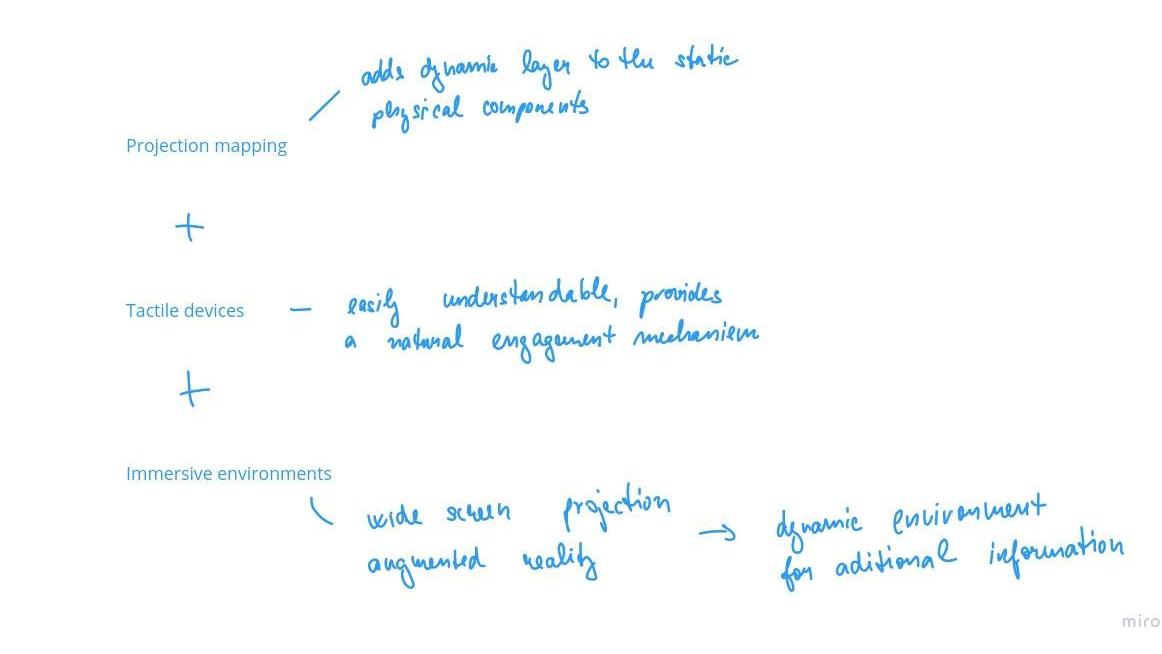 adds dynamic layer to the static
physical components
Projection mapping
+
easily understandable, provides
Tactile devices –
a natural engagement mechanism
+
Immersive environments
wide screen projection
augmented reality
→
dynamic environment
for aditional information
miro